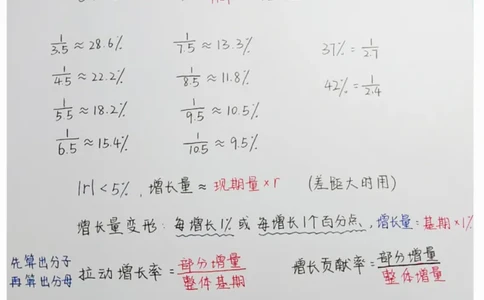 1/3.5 ≈ 28.6% 1/7.5 ≈ 13.3% 37% = 1/2.7
1/4.5 ≈ 22.2% 1/8.5 ≈ 11.8% 42% = 1/2.4
1/5.5 ≈ 18.2% 1/9.5 ≈ 10.5%
1/6.5 ≈ 15.4% 1/10.5 ≈ 9.5%
|r| < 5%, 增长量 ≈ 现期量×r (差距大时用)
增长量变形: 每增长1% 或 每增长1个百分点, 增长量=基期×1%
先算出分子
再算出分母
拉动增长率 = 部分增量/整体基期 增长贡献率 = 部分增量/整体增量